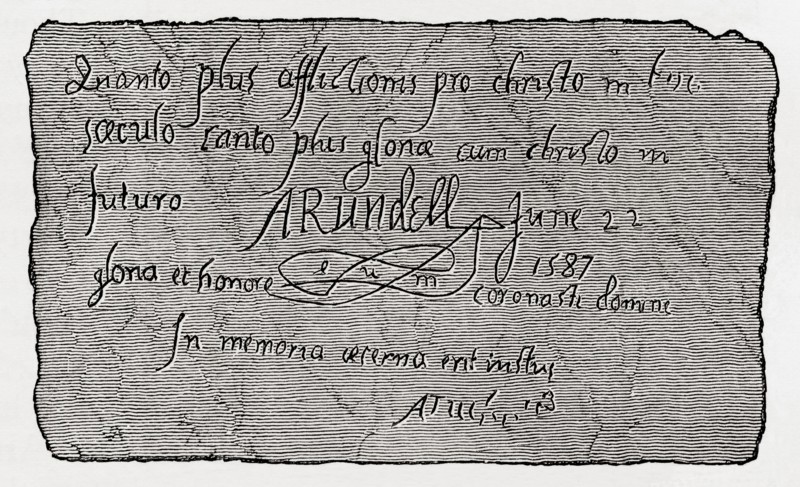 Quanto plus afflictionis pro christo in hoc
sæculo tanto plus gloriæ cum christo in
futuro ARUNdELL June 22
1587
gloria et honore e u m coronasti domine
In memoria æterna erit iustus